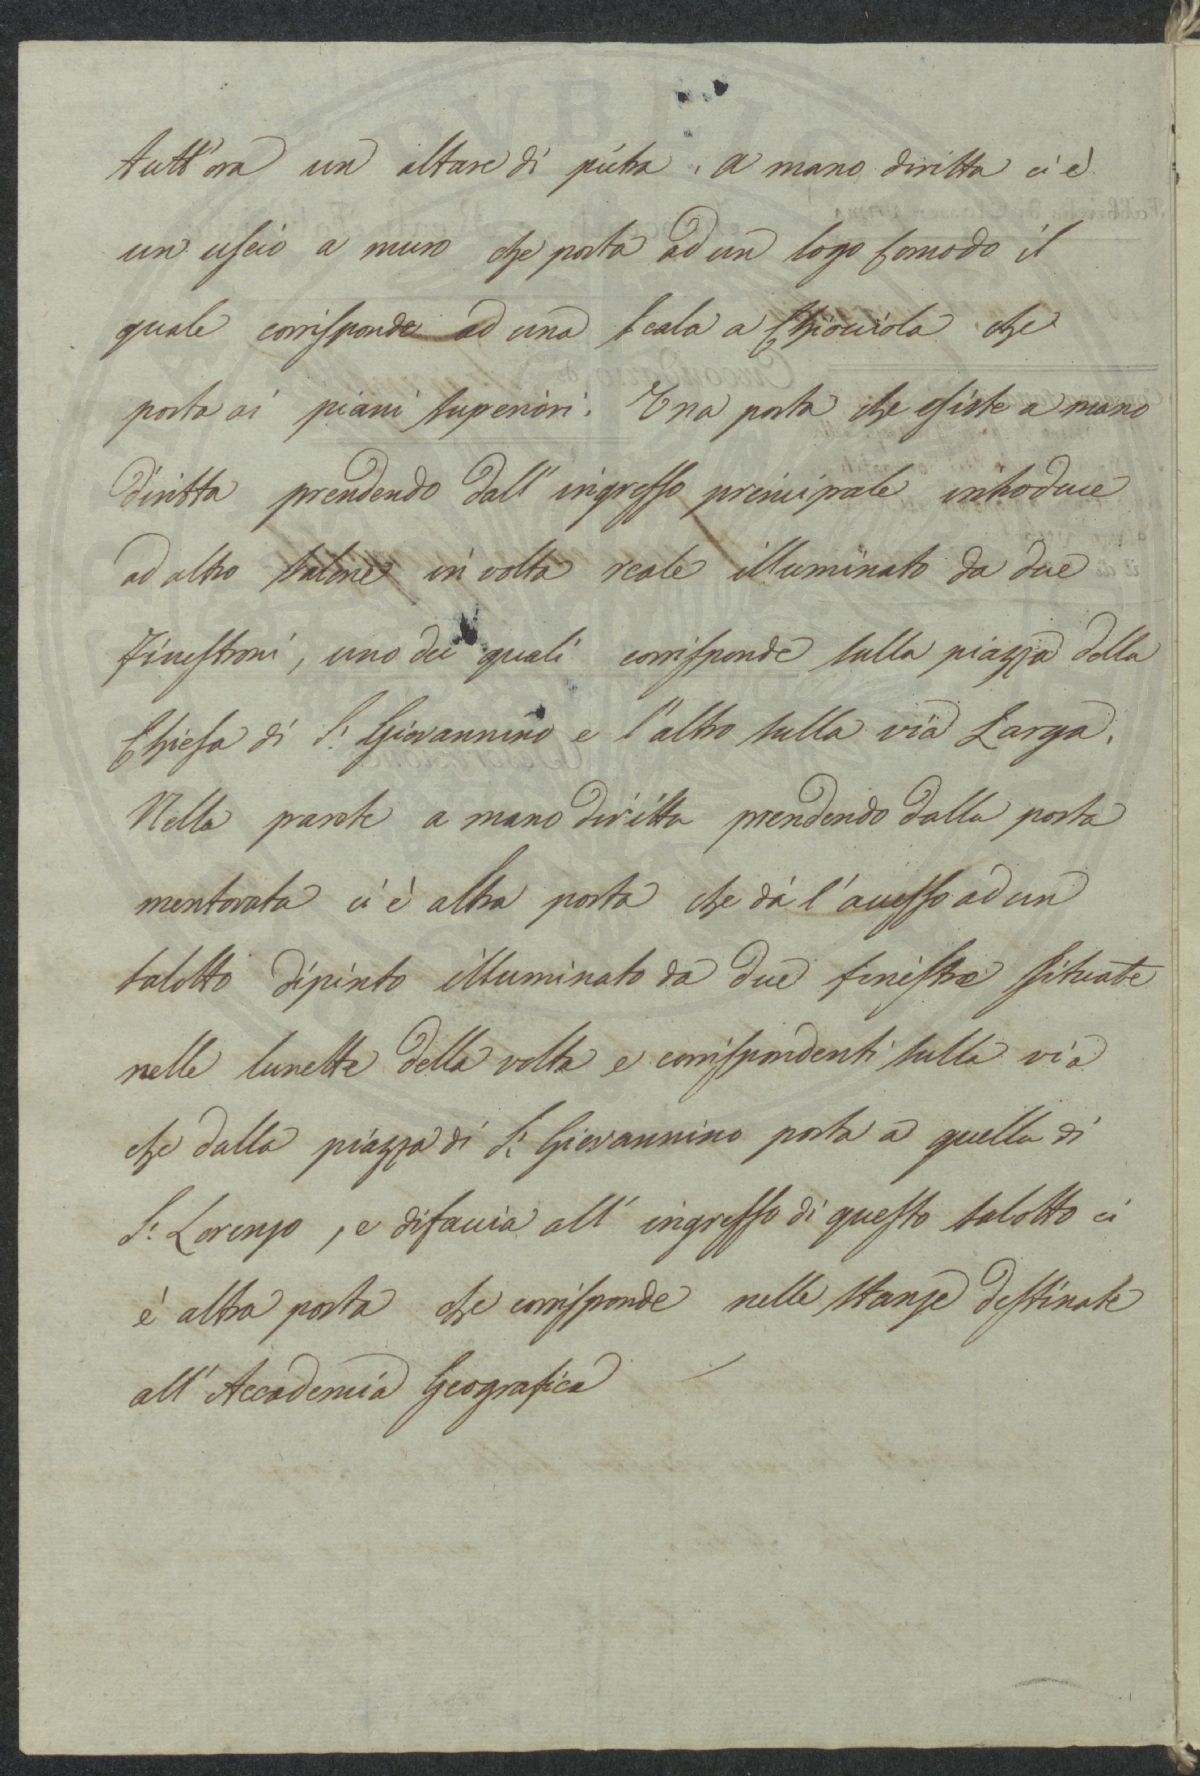 tutt'ora un altare di pietra. A mano diritta ci è
un uscio a muro che porta ad un logo comodo il
quale corrisponde ad una scala a chiocciola che
porta ai piani superiori. Una porta che esiste a mano
diritta prendendo dall'ingresso principale introduce
ad altro salone in volta reale illuminato da due
finestroni, uno dei quali corrisponde sulla piazza della
Chiesa di S. Giovannino e l'altro sulla via Larga.
Nella parete a mano diritta prendendo dalla porta
mentovata ci è altra porta che dà l'accesso ad un
salotto dipinto illuminato da due finestre situate
nelle lunette della volta e corrispondenti sulla via
che dalla piazza di S. Giovannino porta a quella di
S. Lorenzo, e difaccia all'ingresso di questo salotto ci
è altra porta che corrisponde nelle stanze destinate
all'Accademia Geografica